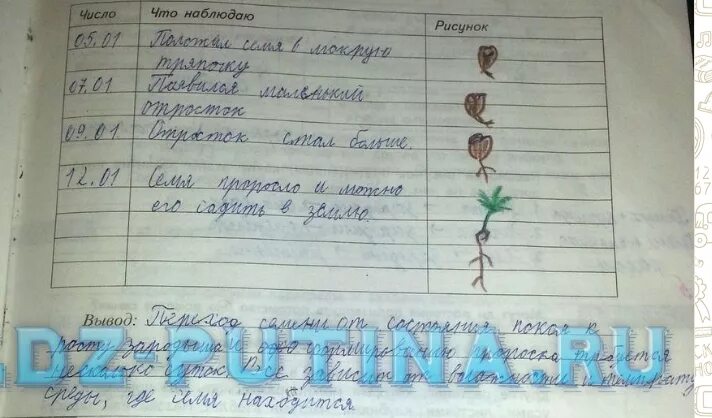 Число Что наблюдаю Рисунок
05.01 Положил семя в мокрую
тряпочку
07.01 Появился маленький
отросток
09.01 Отросток стал больше.
12.01 Семя проросло и можно
его садить в землю.
Вывод: Переход семени от состояния покоя к
росту зародыша и его формированию проростка требуется
несколько суток. Все зависит от влажности и температу
среды, где семя находится.
DZ-PUTINA.RU